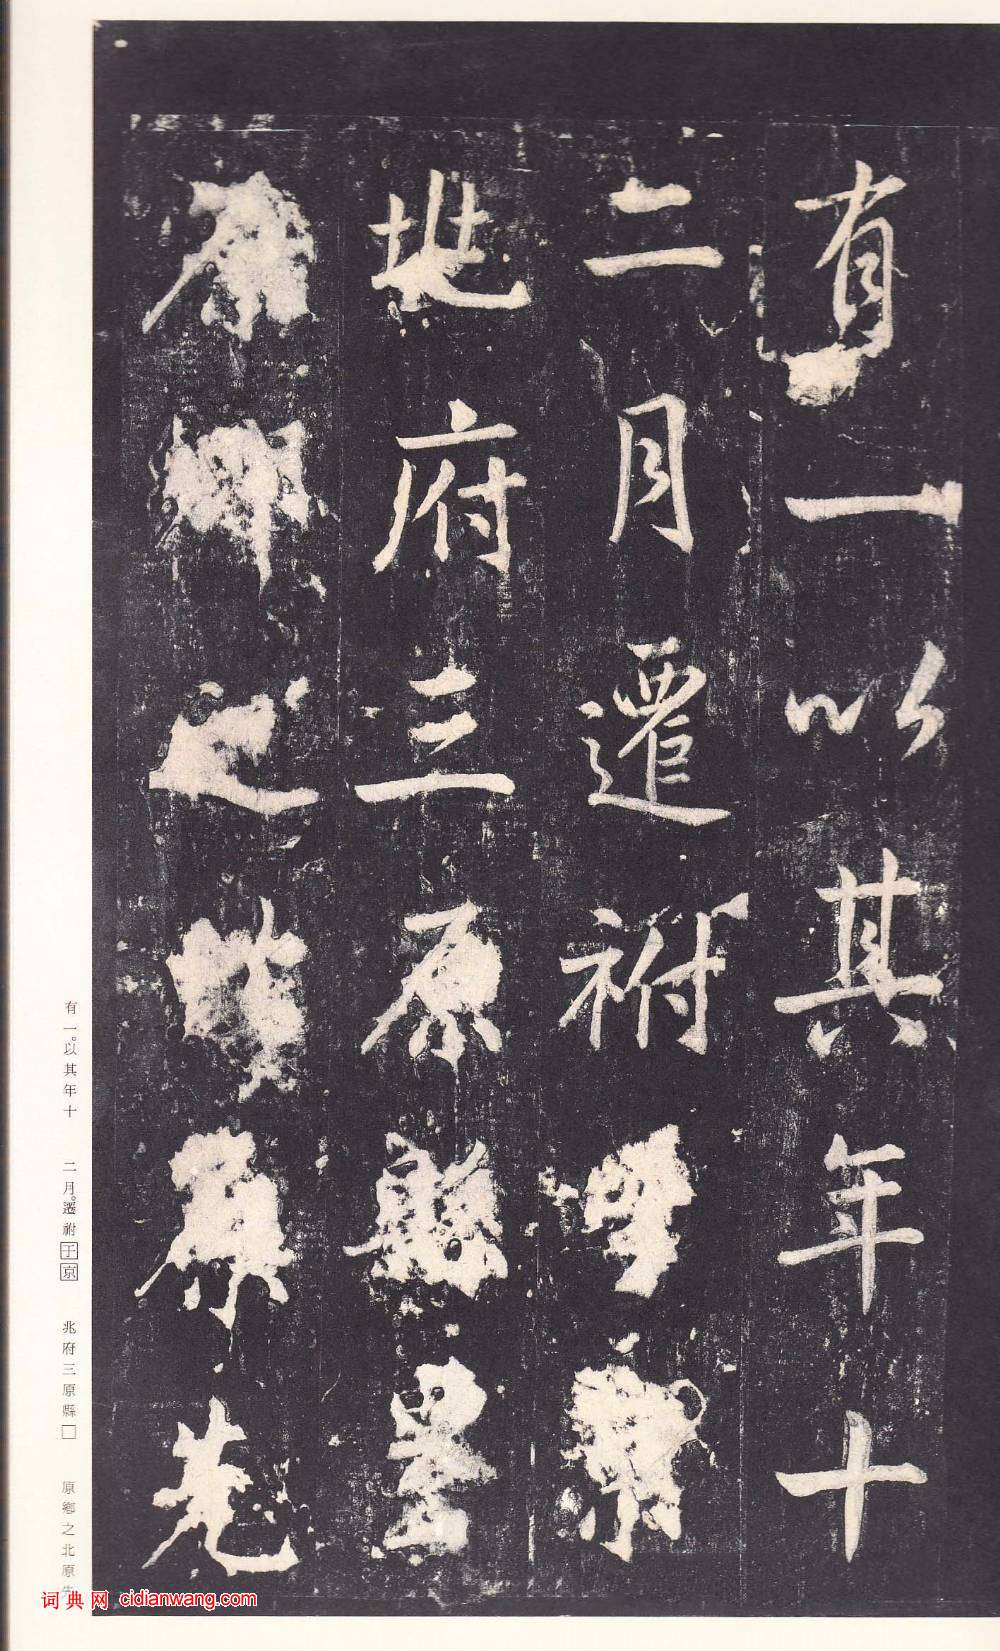 有一以其年十
二月遷祔
兆府三原縣
原鄉之北原先
有一。以其年十
二月。遷祔于京
兆府三原縣□
原鄉之北原先
词典网 cidianwang.com